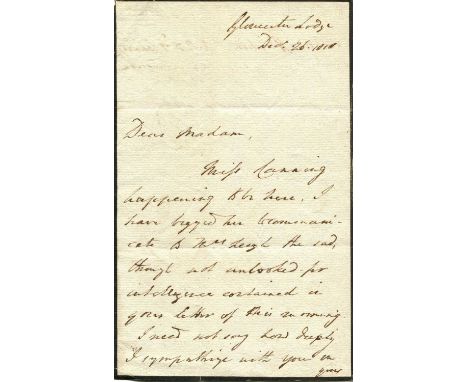 Gloucester Lodge
Dec. 26. 1818
Dear Madam,
Miss Canning
happening to be here, I
have begged her to communi-
cate to Mrs Leigh the sad,
though not unlooked for
intelligence contained in
your letter of this morning
I need not say how deeply
I sympathize with you in
your